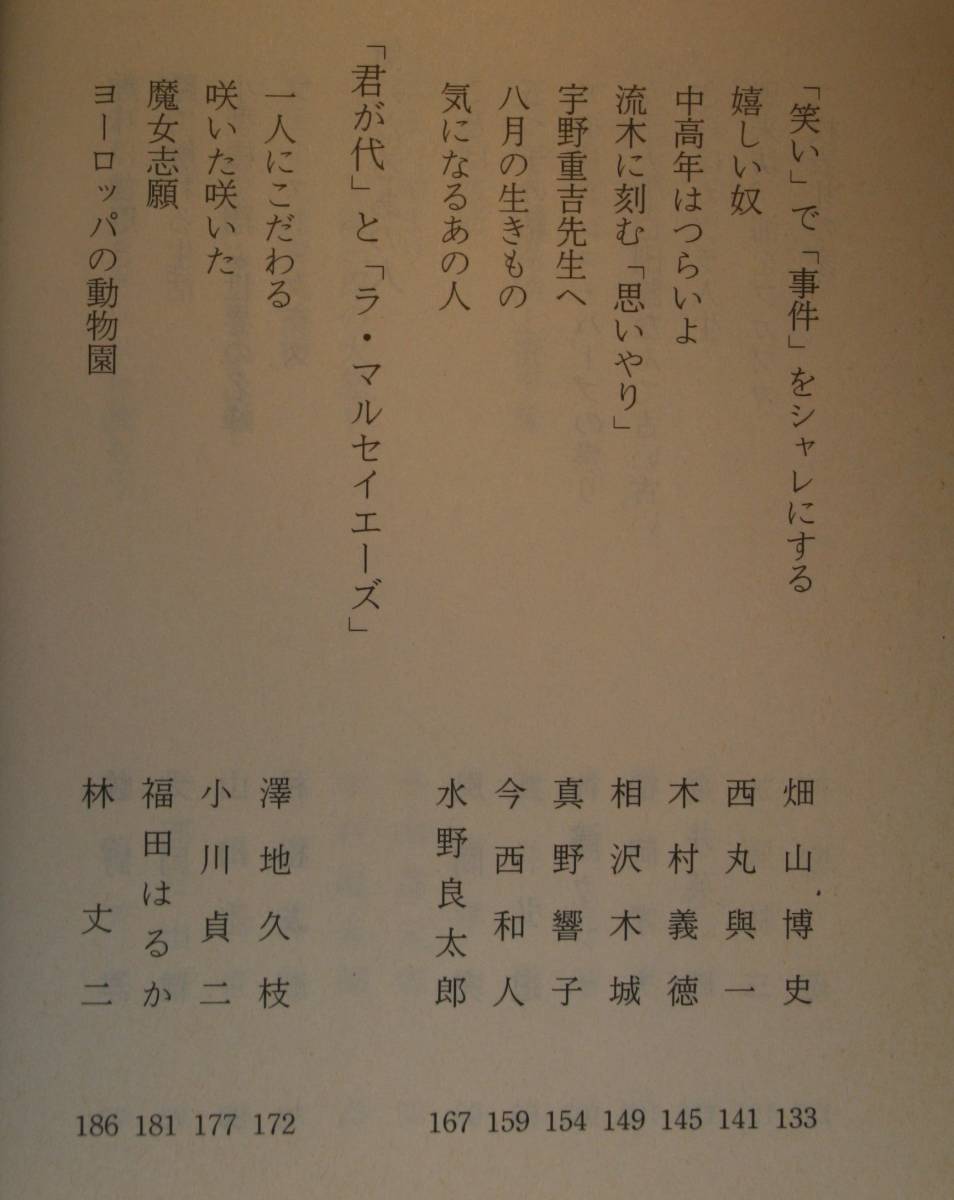 「笑い」で「事件」をシャレにする　畑山博史　133
嬉しい奴　西丸與一　141
中高年はつらいよ　木村義徳　145
流木に刻む「思いやり」　相沢木城　149
宇野重吉先生へ　真野響子　154
八月の生きもの　今西和人　159
気になるあの人　水野良太郎　167
「君が代」と「ラ・マルセイエーズ」
一人にこだわる　澤地久枝　172
咲いた咲いた　小川貞二　177
魔女志願　福田はるか　181
ヨーロッパの動物園　林丈二　186